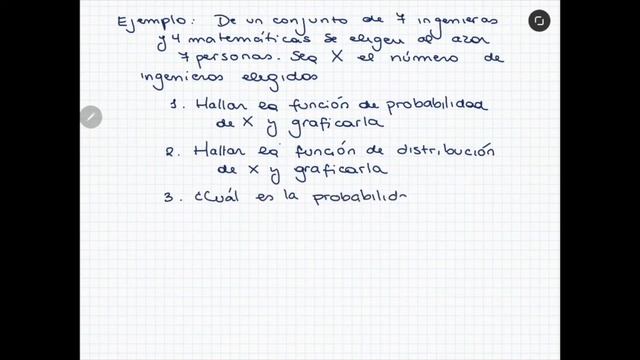 Ejemplo: De un conjunto de 7 ingenieras
y 4 matemáticas se eligen al azar
7 personas. Sea X el número de
ingenieros elegidos
1. Hallar la función de probabilidad
de X y graficarla
2. Hallar la función de distribución
de X y graficarla
3. ¿Cuál es la probabilid